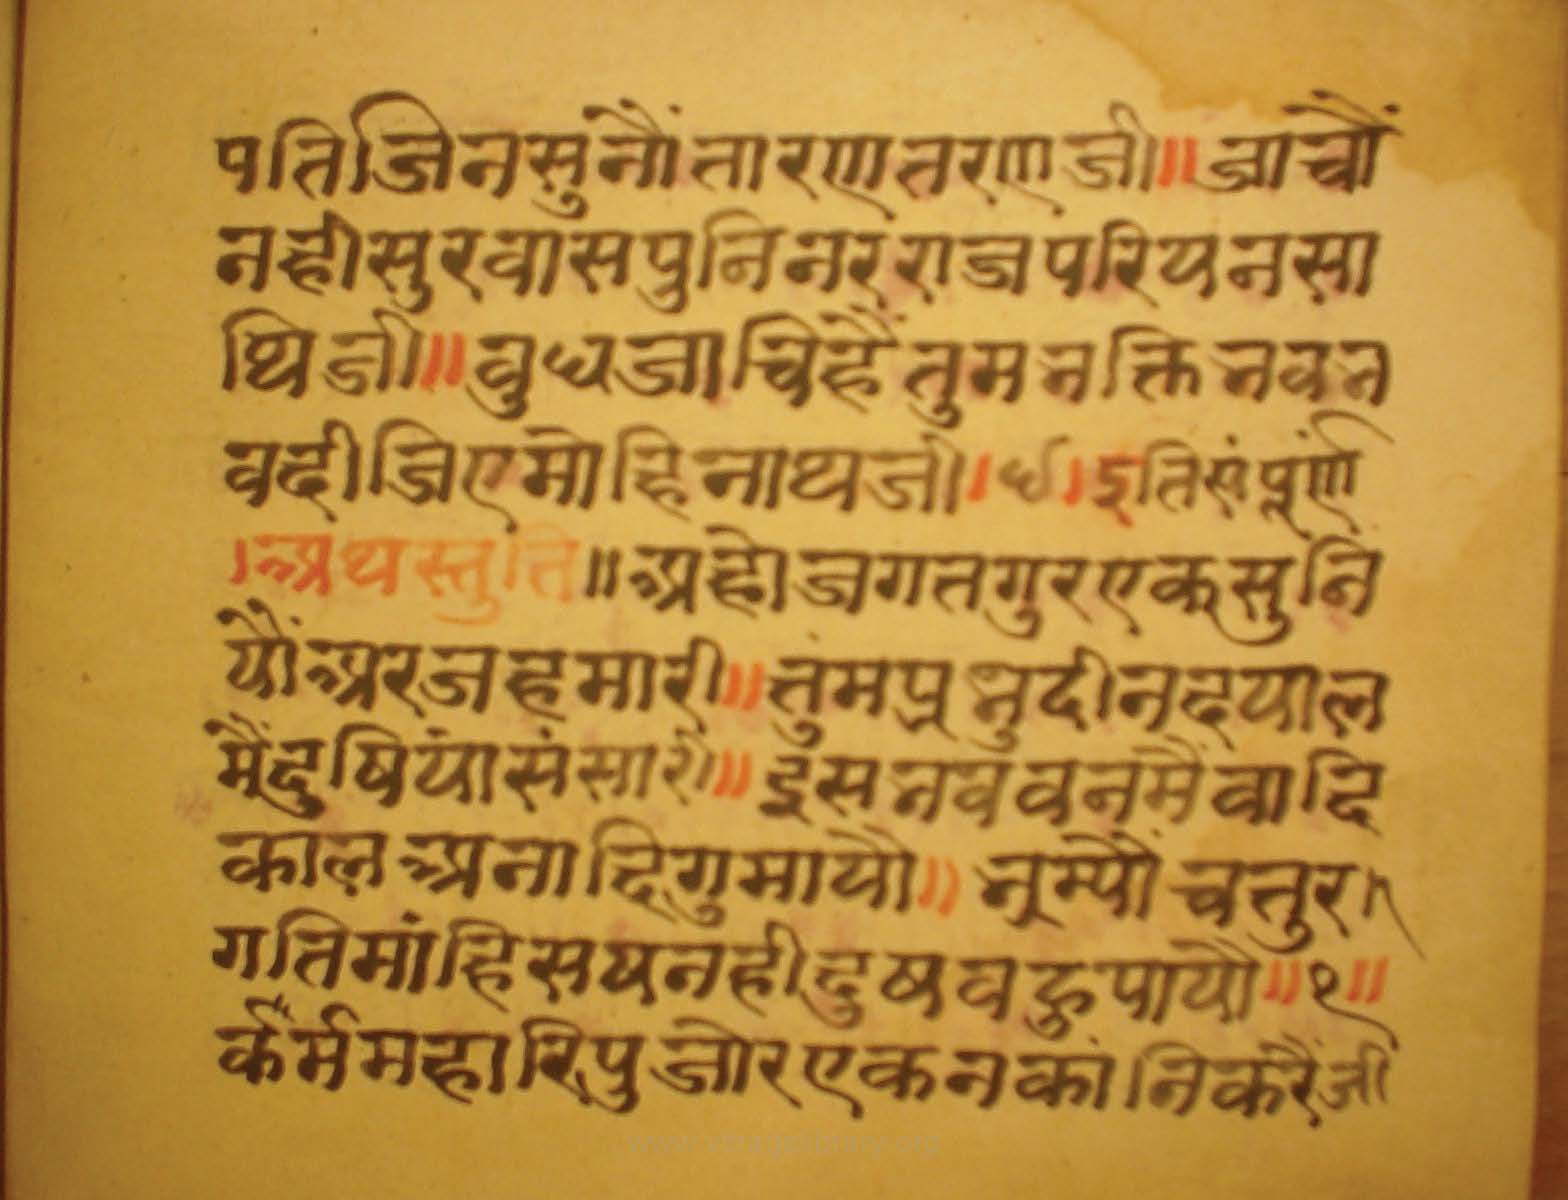 पतिजिनसुनौंतारणतरणजी॥जाचौं
नहीसुरवासपुनिनरराजपरियनसा
थिजी॥वुधजाचिहैंतुमभक्तिभवभ
वदीजिएमोहिनाथजी।४।इतिसंपूर्णं
।अथस्तुति॥अहोजगतगुरएकसुनि
यौंअरजहमारी॥तुंमप्रभुदीनदयाल
मैंदुषियांसंसारी॥इसभववनमैंवादि
कालअनादिगुमायौ॥भ्रम्यौंचतुर
गतिमांहिसुषनहीदुषवहुपायौ॥१॥
कर्ममहारिपुजोरएकनकांनिकरैंजी